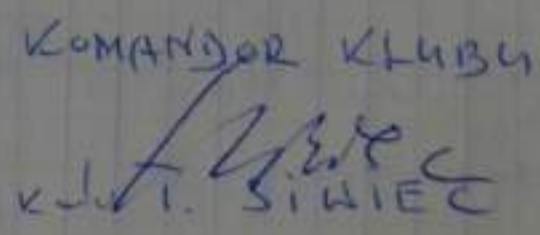 KOMANDOR KLUBU
T. SIWIEC